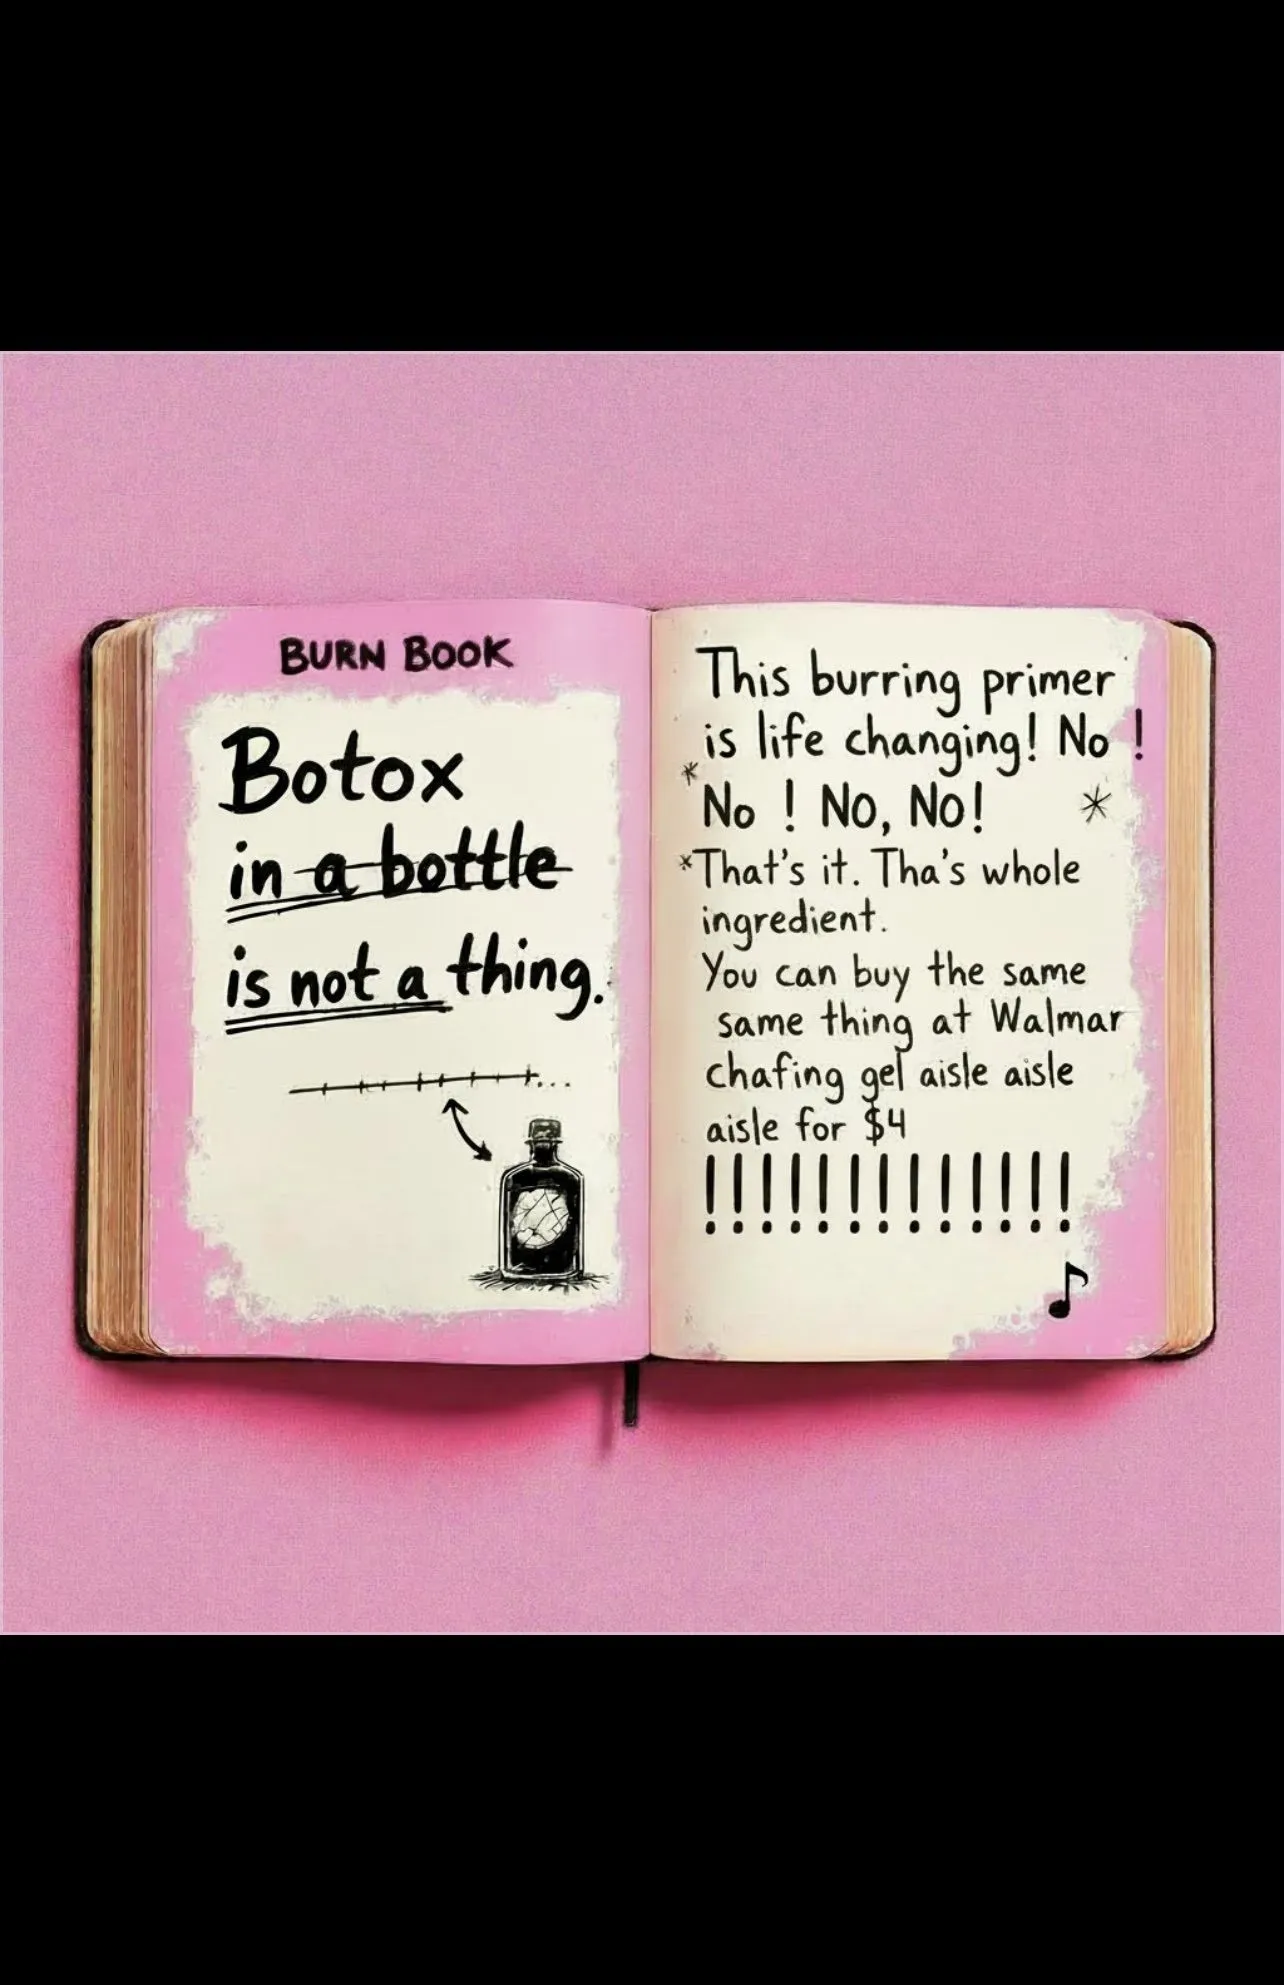 BURN BOOK
Botox
in a bottle
is not a thing.
This burring primer
is life changing! No !
*No ! NO, NO! *
*That's it. Tha's whole
ingredient.
You can buy the same
same thing at Walmar
chafing gel aisle aisle
aisle for $4
!!!!!!!!!!!!!